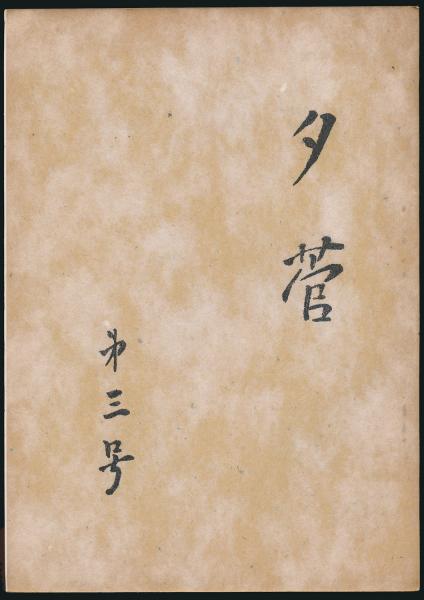 夕菅
第三号